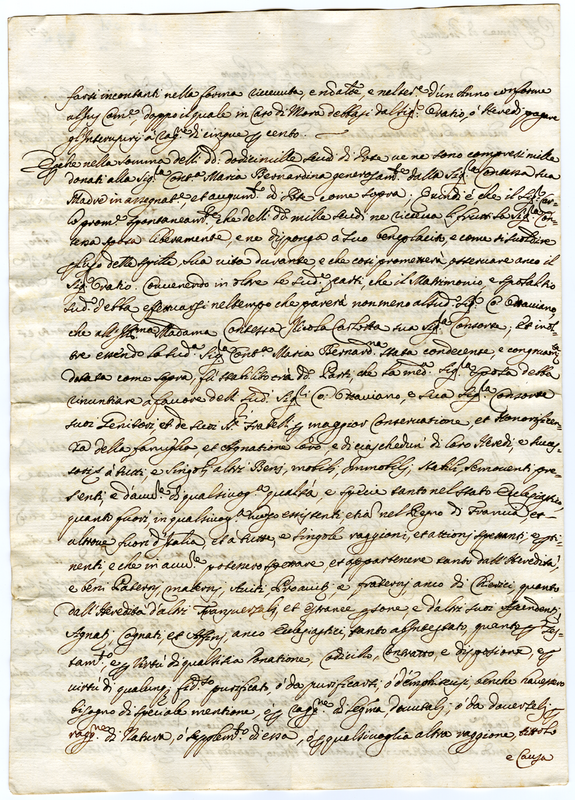 farsi in contanti nella forma ricevuta, e ne d'un Anno conforme
dappo il quale in Caso di Mora debbasi dal Sig.r Oratio, ò Heredi pagare
gl'Interusurij a Rag.e di cinque per cento.
E che nella somma delli dd.i dodicimille scudi di Dote ve ne sono compresi mille
donati alla Sig.ra Cont.a Maria Bernardina generosam.te dalla Sig.ra Contessa sua
Madre in et augum.to di Dote come sopra. Quindi è che il Sig.r
prom.e spontaneam.te che delli dd.i mille scudi ne riceva i frutti la Sig.ra
possa liberamente, e ne disponga a suo beneplacito, e come di
della sua vita durante, e che così prometterà osservare anco il
Sig.r Oratio. Convenendo in oltre le sud.e parti, che il Matrimonio, e spositalitio
sud.o debba effettuarsi nel tempo che parerà non meno al sud.o Sig.r C. Ottaviano,
che all' Madama Contessa Nicola Carlotta sua Sig.ra Consorte; Et inol-
tre essendo la sud.a Sig.ra Cont.a Maria Bernard.na stata condecente, e
dotata come sopra, fù stabilito trà dd.e Parti, che la med.a Sig.ra Sposa debba
rinuntiare à favore delli sud.i Sig.ri C. Ottaviano, e sua Sig.ra Consorte
suoi Genitori et de suoi SS.ri Fratelli per maggior Conservatione, et Honorificen-
za della famiglia et Agnatione loro, e di ciascheduni di loro Heredi, e succes-
sori à tutti, e singoli altri Beni, mobili, Immobili, stabili, semoventi pre-
senti, e di qualsivog.a qualità, e spècie tanto nel stato Ecclesiastico,
quanto fuori in qualsivog.a luogo esistenti etia' nel Regno di Francia, et
altrove fuori d'Italia, et a tutte, e singole raggioni, et attioni spettanti e perti-
nenti e che in potessero spettare, et appartenere tanto dall'Heredità
e beni Paterni, materni, Aviti, Proaviti, e fraterni anco di quanto
dall'Heredità d'altri Transversali, et estranee persone e d'altri suoi Ascendenti,
Agnati, Cognati, et Affini, anco Ecclesiastici, tanto abintestato, quanto per Tes-
tam.to e per Virtù di qualsisia Donatione, Codicilo, Contratto e dispositione, e per
virtù di qualunq. purificati, ò da purificarsi; ò d'emphiteusi, benche n'havessero
bisogno di speciale mentione, e per cag.ne di legitima; ò da
rag.ne di Natura, ò supplem.to di essa, ò per qualsivoglia altra raggione, titolo
e Causa